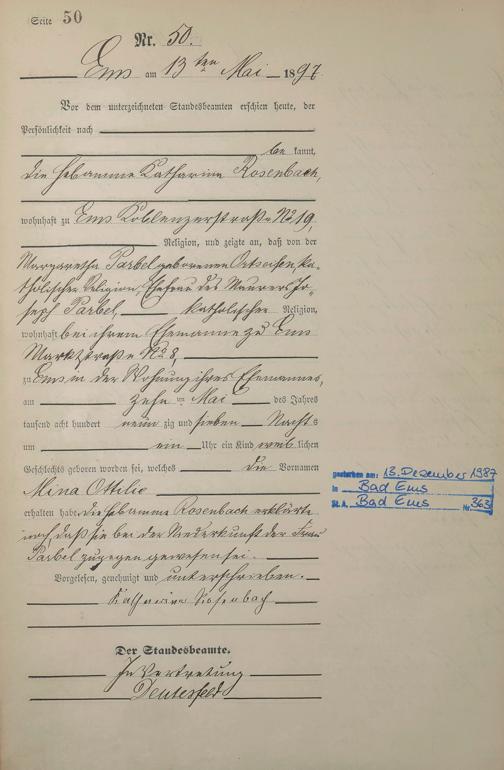 Seite 50
Nr. 50.
Ems am 13ten Mai 1897
Vor dem unterzeichneten Standesbeamten erschien heute, der
Persönlichkeit nach
be kannt,
die Hebamme Katharina Rosenbach,
wohnhaft zu Ems Koblenzerstraße No 19,
Religion, und zeigte an, daß von der
Margaretha Parbel geborenen Ortseifen, ka-
tholischer Religion, Ehefrau des Maurers Jo-
seph Parbel, katholischer Religion,
wohnhaft bei ihrem Ehemanne zu Ems
Marktstraße No 8,
zu Ems in der Wohnung ihres Ehemannes,
am zehn ten Mai des Jahres
tausend acht hundert neun zig und sieben Nachts
um ein Uhr ein Kind weib lichen
Geschlechts geboren worden sei, welches die Vornamen
Mina Ottilie
erhalten habe. Die Hebamme Rosenbach erklärte
noch, daß sie bei der Niederkunft der Frau
Parbel zugegen gewesen sei.
Vorgelesen, genehmigt und unterschrieben.
Katharina Rosenbach
Der Standesbeamte.
In Vertretung
gestorben am: 13. Dezember 1987
in Bad Ems
St.A. Bad Ems Nr. 363